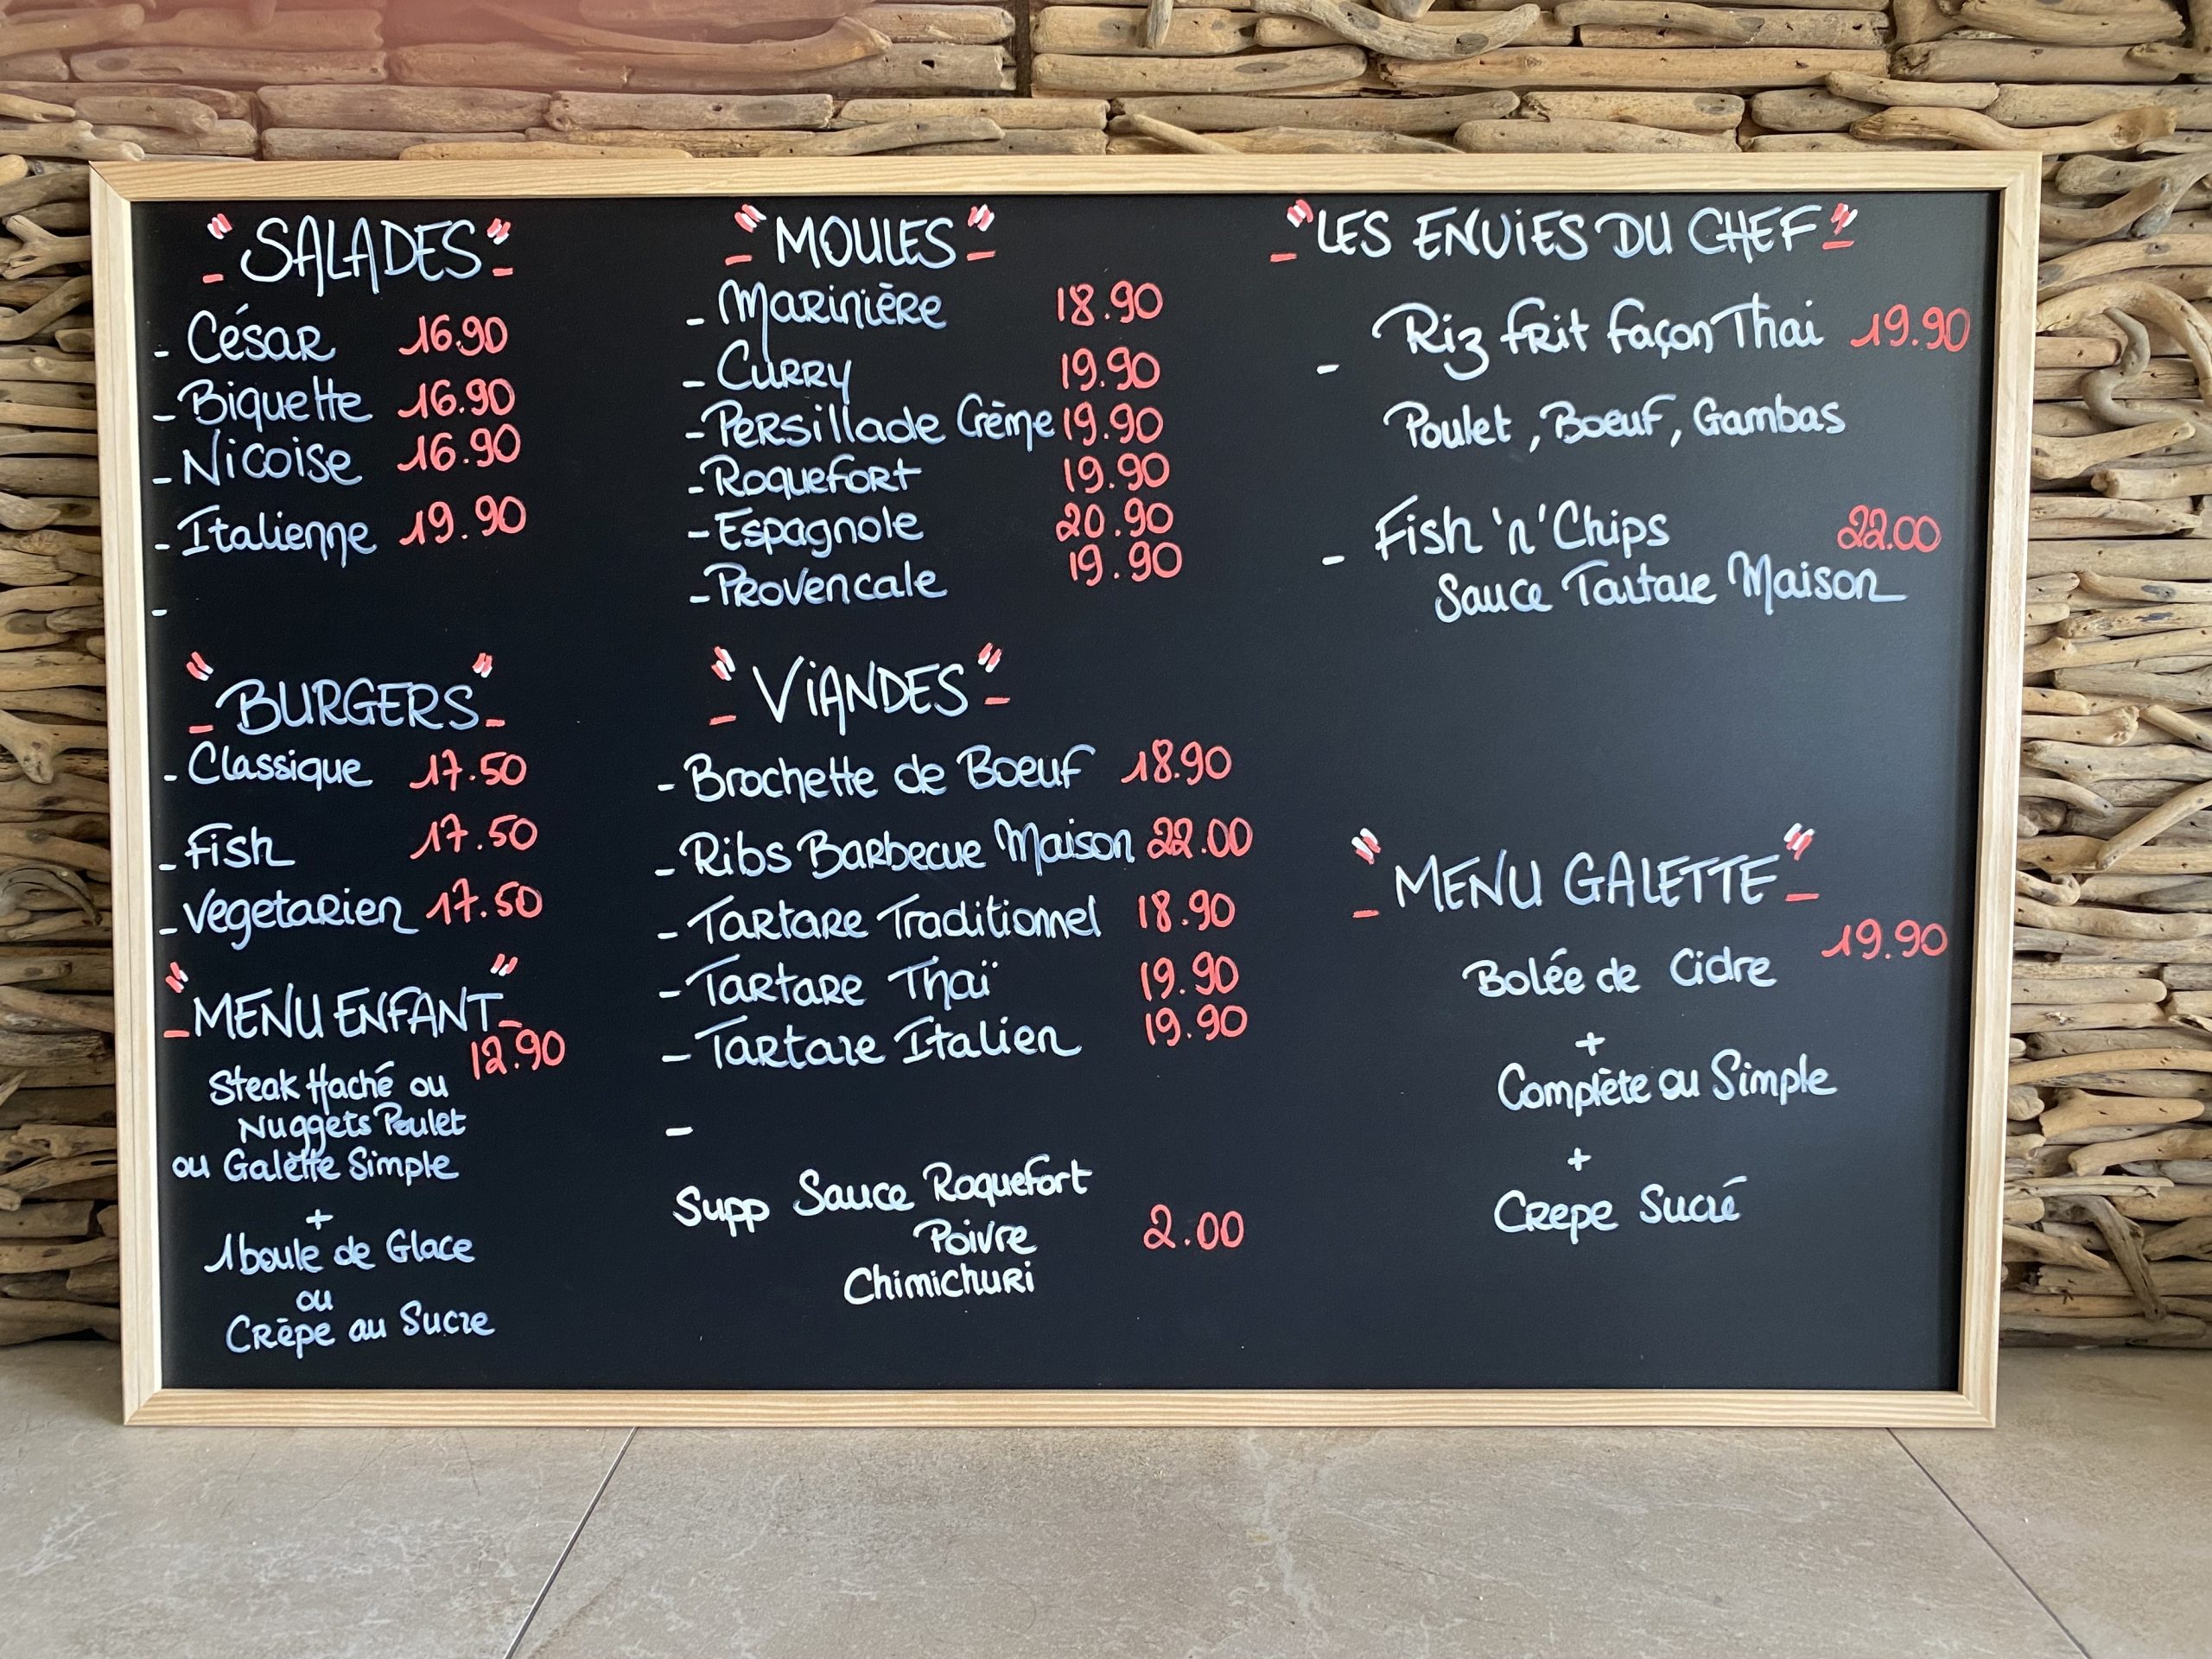 "SALADES"
- César 16.90
- Biquette 16.90
- Nicoise 16.90
- Italienne 19.90
-
"BURGERS"
- Classique 17.50
- Fish 17.50
- Vegetarien 17.50
"MENU ENFANT"
12.90
Steak Haché ou
Nuggets Poulet
ou Galette Simple
+
1 boule de Glace
ou
Crêpe au Sucre
"MOULES"
- Marinière 18.90
- Curry 19.90
- Persillade Crème 19.90
- Roquefort 19.90
- Espagnole 20.90
- Provencale 19.90
"VIANDES"
- Brochette de Boeuf 18.90
- Ribs Barbecue Maison 22.00
- Tartare Traditionnel 18.90
- Tartare Thaï 19.90
- Tartare Italien 19.90
-
Supp Sauce Roquefort
Poivre 2.00
Chimichuri
"LES ENVIES DU CHEF"
- Riz frit façon Thai 19.90
Poulet, Boeuf, Gambas
- Fish 'n' Chips 22.00
Sauce Tartare Maison
"MENU GALETTE"
19.90
Bolée de Cidre
+
Complète ou Simple
+
Crepe Sucré